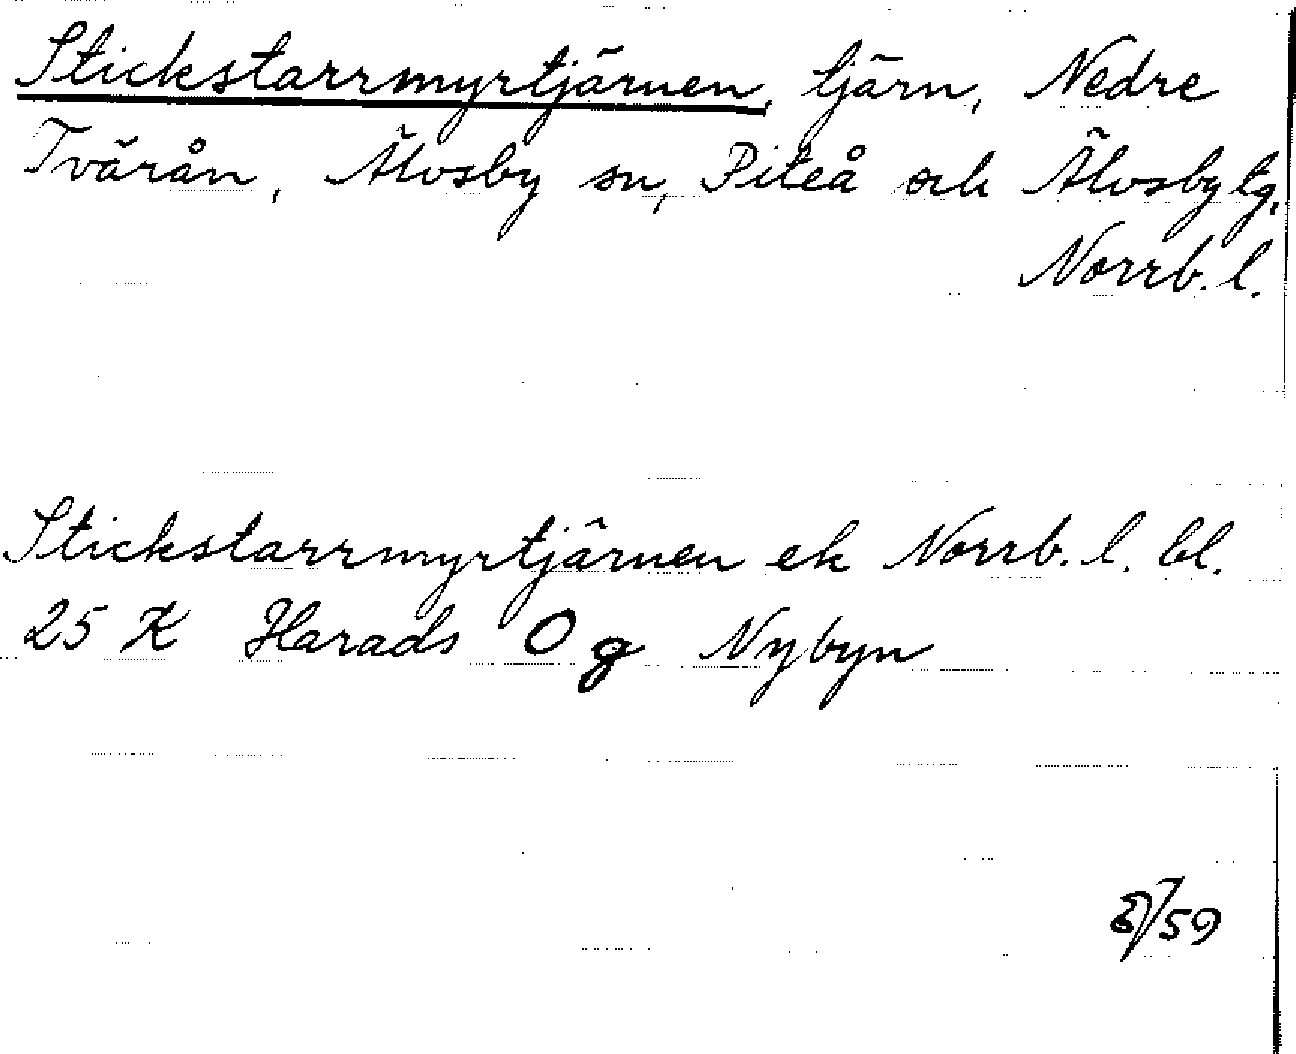 Stickstarrmyrtjärnen, tjärn, Nedre
Tvärån, Älvsby sn, Piteå och Älvsby tg,
Norrb. l.
Stickstarrmyrtjärnen ek Norrb. l. bl.
25 K Harads O g Nybyn
/59